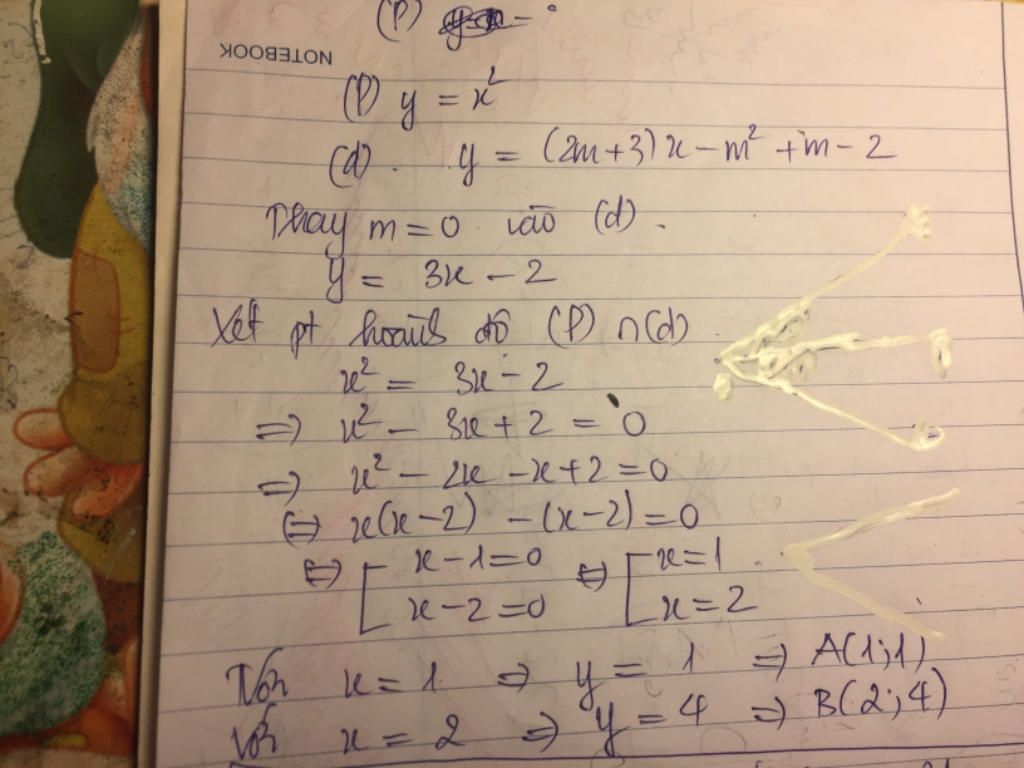 (P)
NOTEBOOK
(P) y = x²
(d). y = (2m+3)x - m² + m - 2
Thay m = 0 vào (d).
y = 3x - 2
Xét pt hoành độ (P) ∩ (d)
x² = 3x - 2
=> x² - 3x + 2 = 0
=> x² - 2x - x + 2 = 0
<=> x(x-2) - (x-2) = 0
<=> [ x - 1 = 0 <=> [ x = 1
x - 2 = 0 x = 2
Với x = 1 => y = 1 => A(1;1)
Với x = 2 => y = 4 => B(2;4)